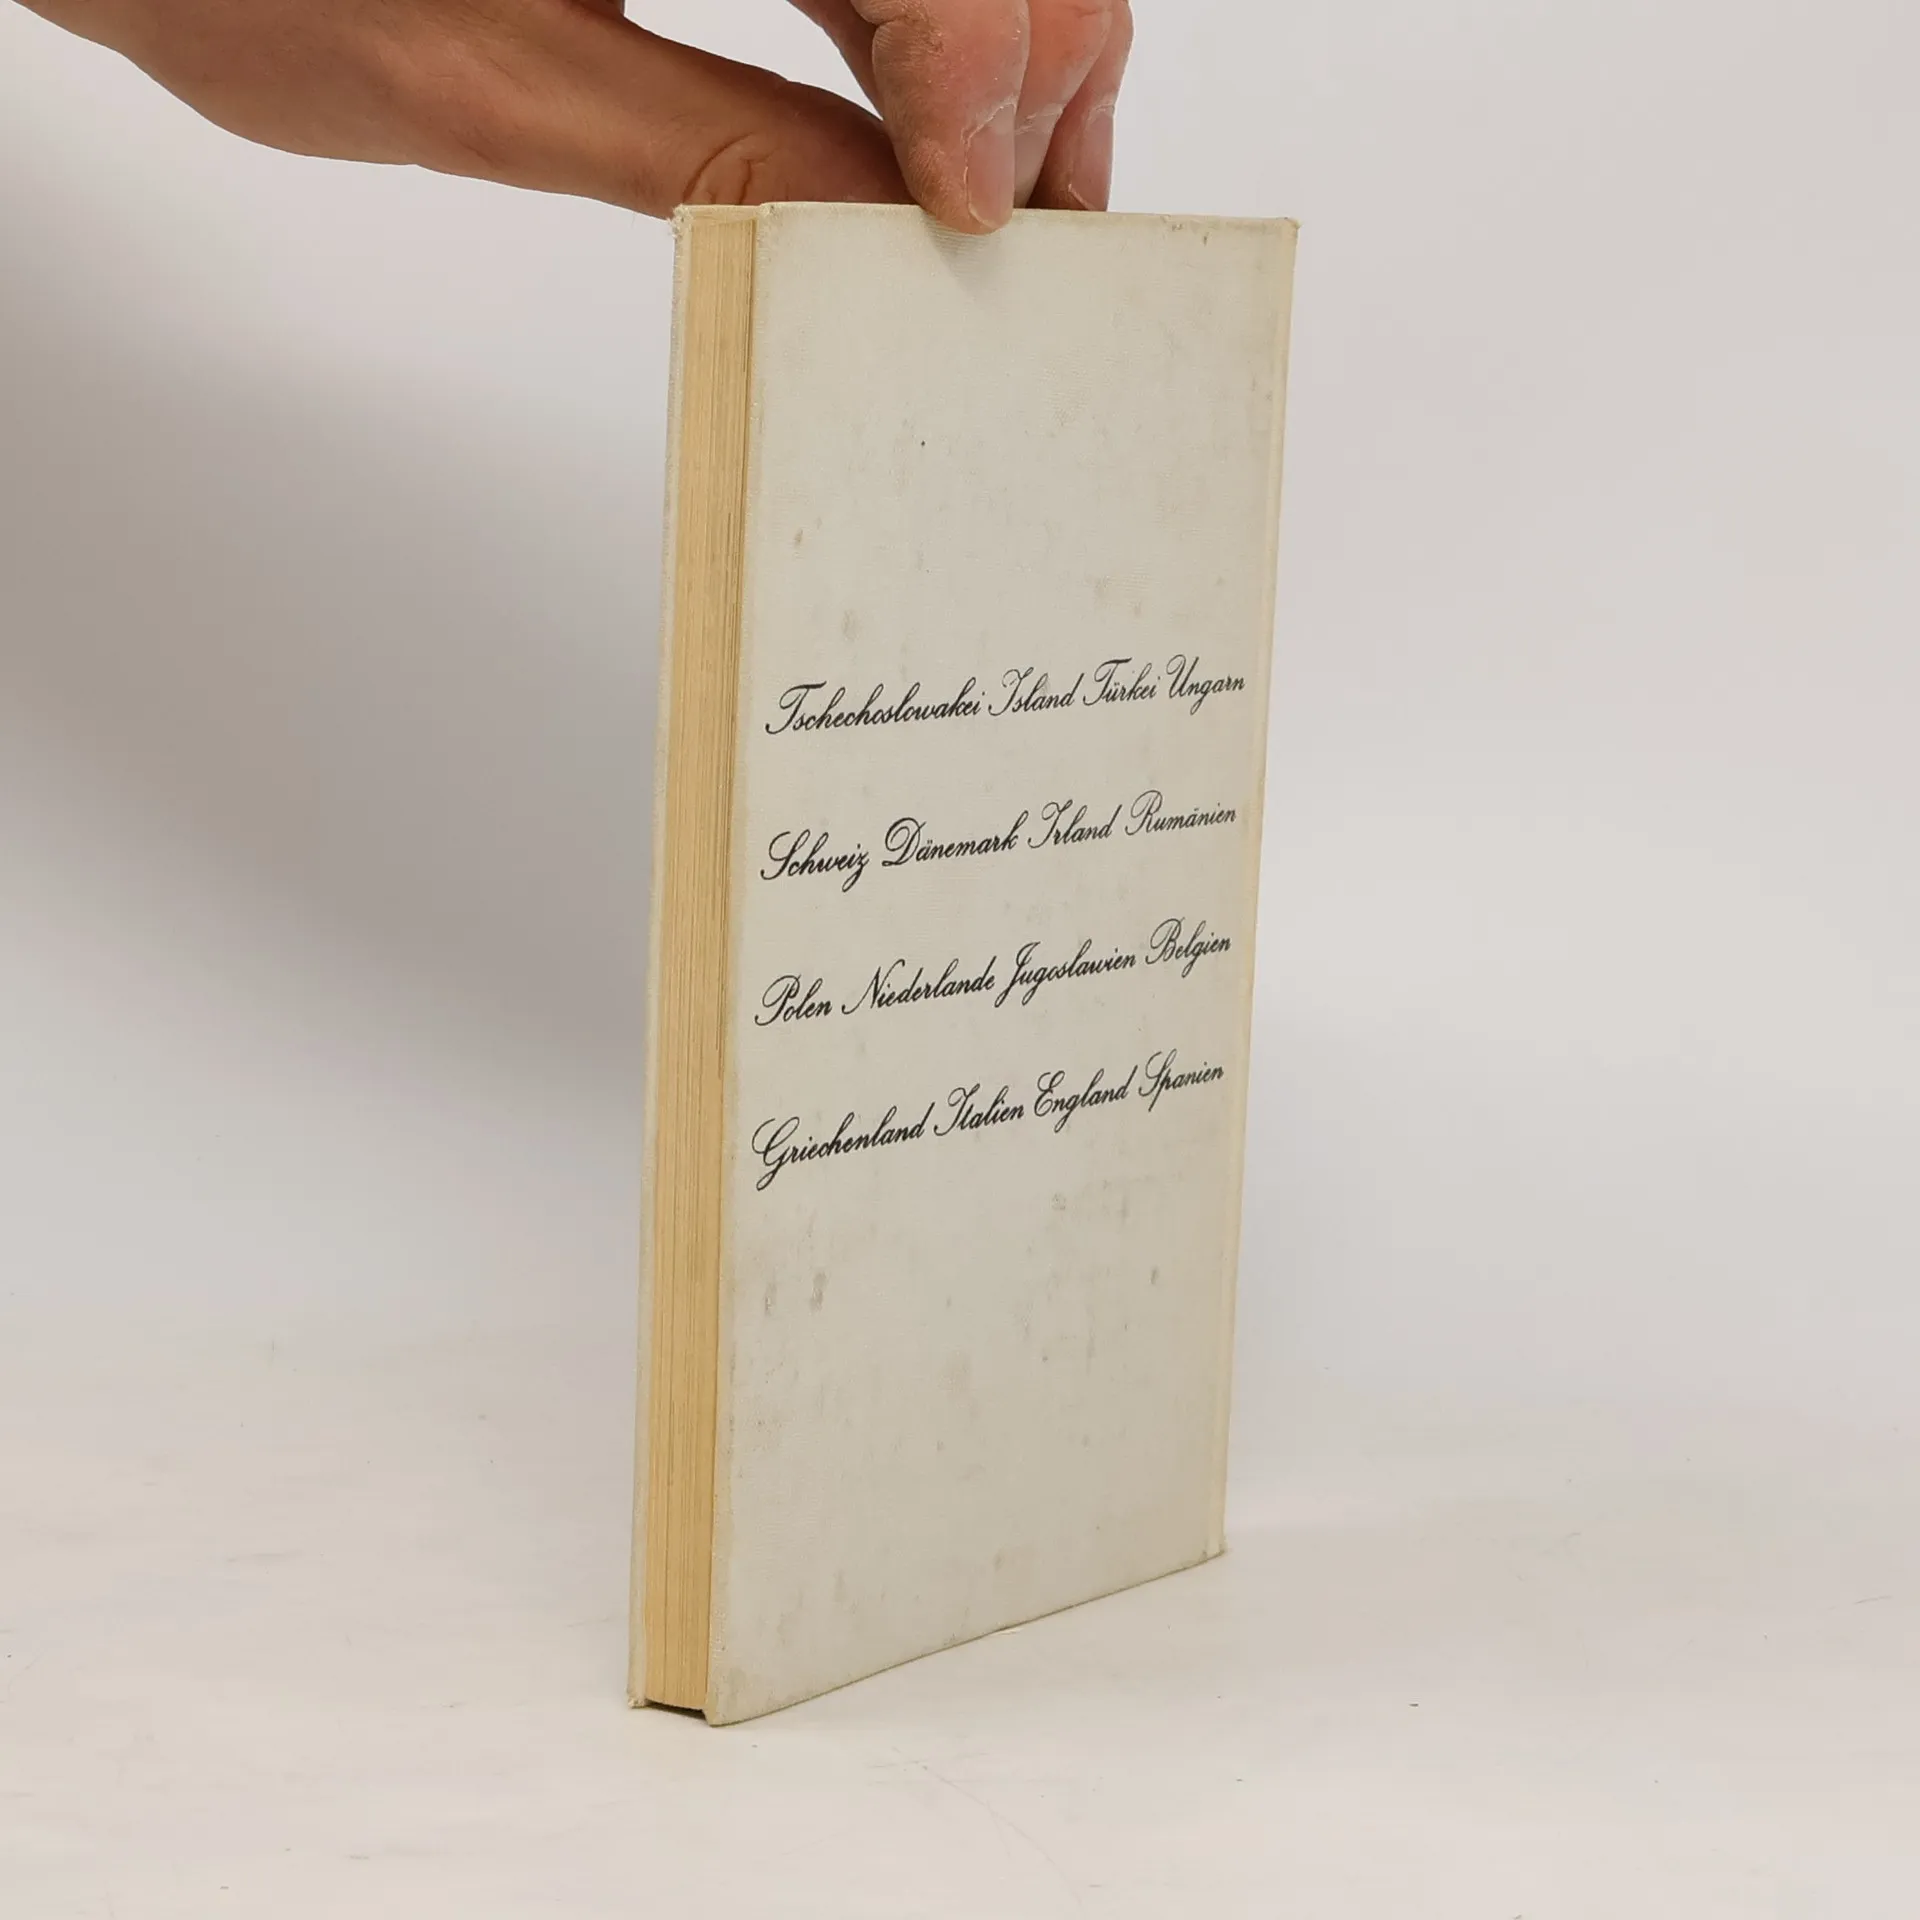 Tschechoslowakei Island Türkei Ungarn
Schweiz Dänemark Irland Rumänien
Polen Niederlande Jugoslawien Belgien
Griechenland Italien England Spanien